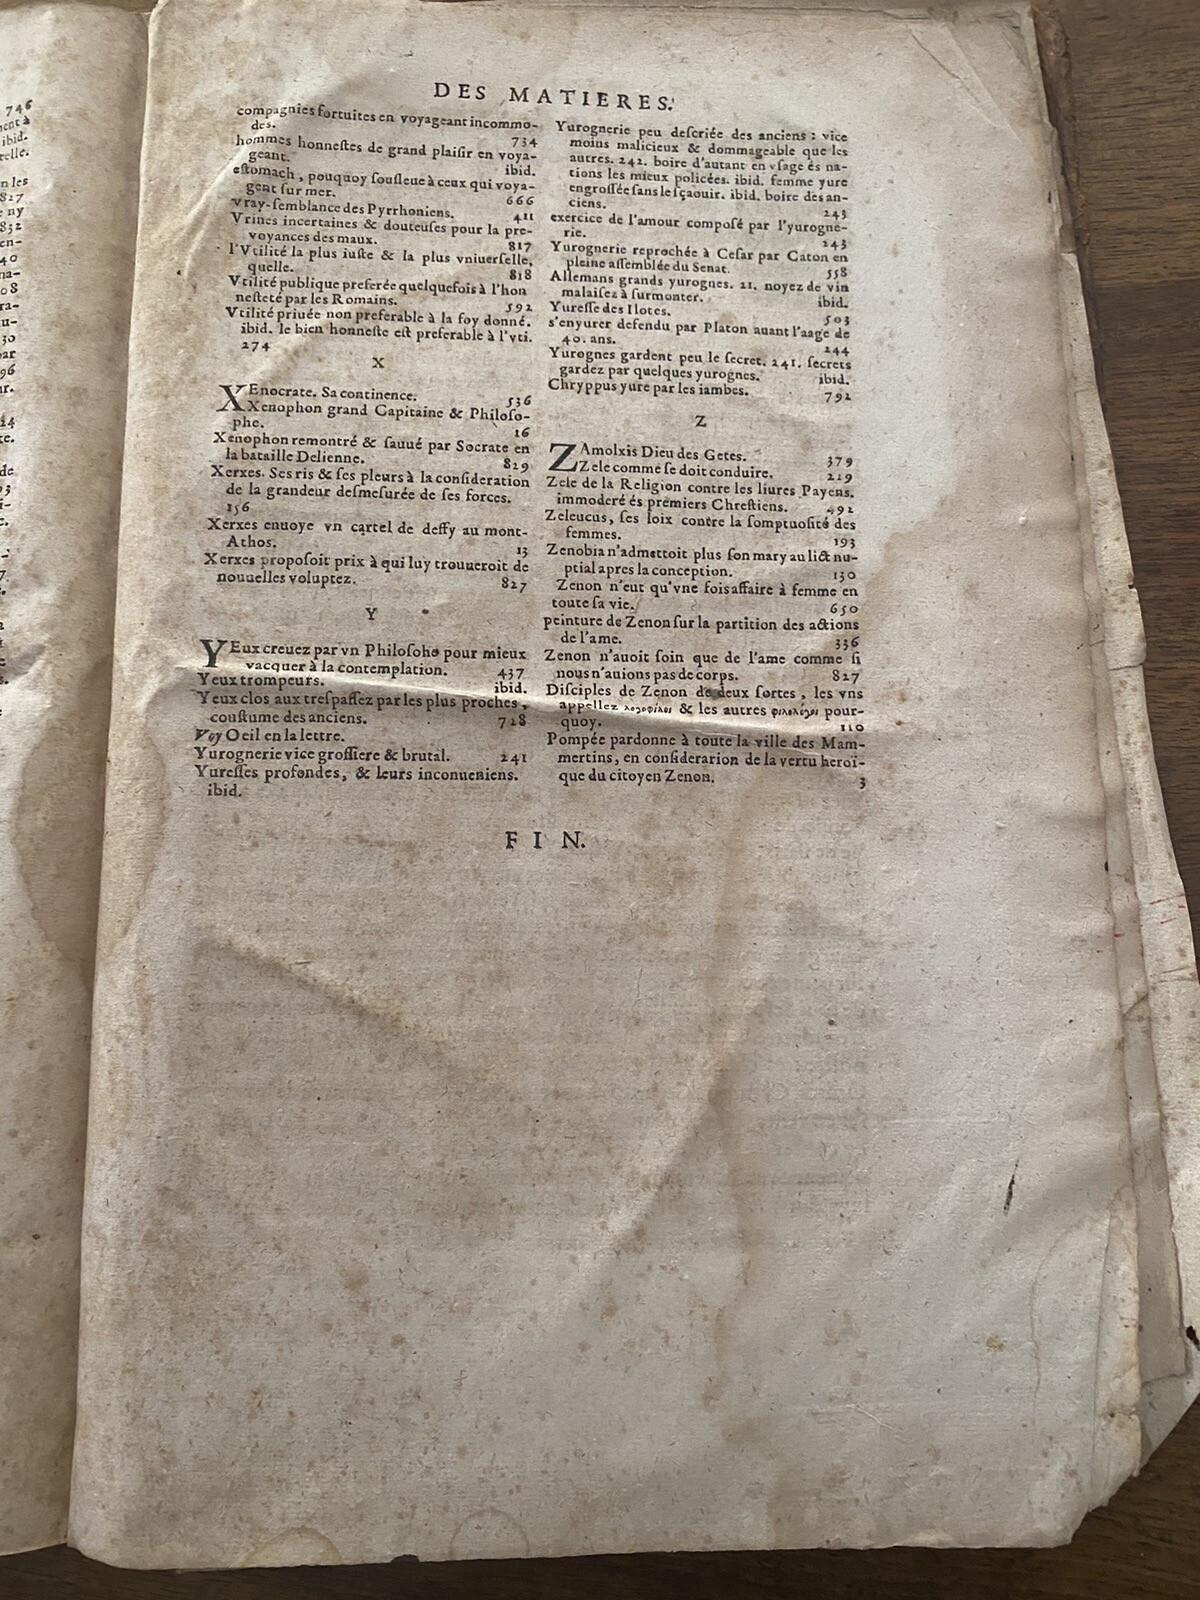 746
ent à
ibid.
relle.
n les
827
e ny
832
en-
40
na-
08
ra-
u-
30
par
96
ur.
14
te.
de
93
DES MATIERES.
compagnies fortuites en voyageant incommo-
des. 734
hommes honneſtes de grand plaiſir en voya-
geant. ibid.
eſtomach, pouquoy ſouſleue à ceux qui voya-
gent ſur mer. 666
vray-ſemblance des Pyrrhoniens. 411
Vrines incertaines & douteuſes pour la pre-
voyances des maux. 817
l'Vtilité la plus iuſte & la plus vniuerſelle,
quelle. 818
Vtilité publique preferée quelquefois à l'hon
neſteté par les Romains. 592
Vtilité priuée non preferable à la foy donné.
ibid. le bien honneſte eſt preferable à l'vti.
274
X
XEnocrate. Sa continence. 536
Xenophon grand Capitaine & Philoſo-
phe. 16
Xenophon remontré & ſauué par Socrate en
la bataille Delienne. 829
Xerxes. Ses ris & ſes pleurs à la conſideration
de la grandeur deſmeſurée de ſes forces.
156
Xerxes enuoye vn cartel de deffy au mont-
Athos. 13
Xerxes propoſoit prix à qui luy trouueroit de
nouuelles voluptez. 827
Y
YEux creuez par vn Philoſoho pour mieux
vacquer à la contemplation. 437
Yeux trompeurs. ibid.
Yeux clos aux treſpaſſez par les plus proches,
couſtume des anciens. 728
Voy Oeil en la lettre.
Yurognerie vice groſſiere & brutal. 241
Yureſſes profondes, & leurs inconueniens.
ibid.
Yurognerie peu deſcriée des anciens : vice
moins malicieux & dommageable que les
autres. 242. boire d'autant en vſage és na-
tions les mieux policées. ibid. femme yure
engroſſée ſans le ſçaouir. ibid. boire des an-
ciens. 243
exercice de l'amour compoſé par l'yurogne-
rie. 243
Yurognerie reprochée à Ceſar par Caton en
pleine aſſemblée du Senat. 558
Allemans grands yurognes. 21. noyez de vin
malaiſez à ſurmonter. ibid.
Yureſſe des Ilotes. 503
s'enyurer defendu par Platon auant l'aage de
40. ans. 244
Yurognes gardent peu le ſecret. 241. ſecrets
gardez par quelques yurognes. ibid.
Chryppus yure par les iambes. 792
Z
ZAmolxis Dieu des Getes. 379
Zele comme ſe doit conduire. 219
Zele de la Religion contre les liures Payens.
immoderé és premiers Chreſtiens. 492
Zeleucus, ſes loix contre la ſomptuoſité des
femmes. 193
Zenobia n'admettoit plus ſon mary au lict nu-
ptial apres la conception. 130
Zenon n'eut qu'vne fois affaire à femme en
toute ſa vie. 650
peinture de Zenon ſur la partition des actions
de l'ame. 336
Zenon n'auoit ſoin que de l'ame comme ſi
nous n'auions pas de corps. 827
Diſciples de Zenon de deux ſortes, les vns
appellez λογοφίλοι & les autres φιλολόγοι pour-
quoy. 110
Pompée pardonne à toute la ville des Mam-
mertins, en conſiderarion de la vertu heroï-
que du citoyen Zenon. 3
FIN.